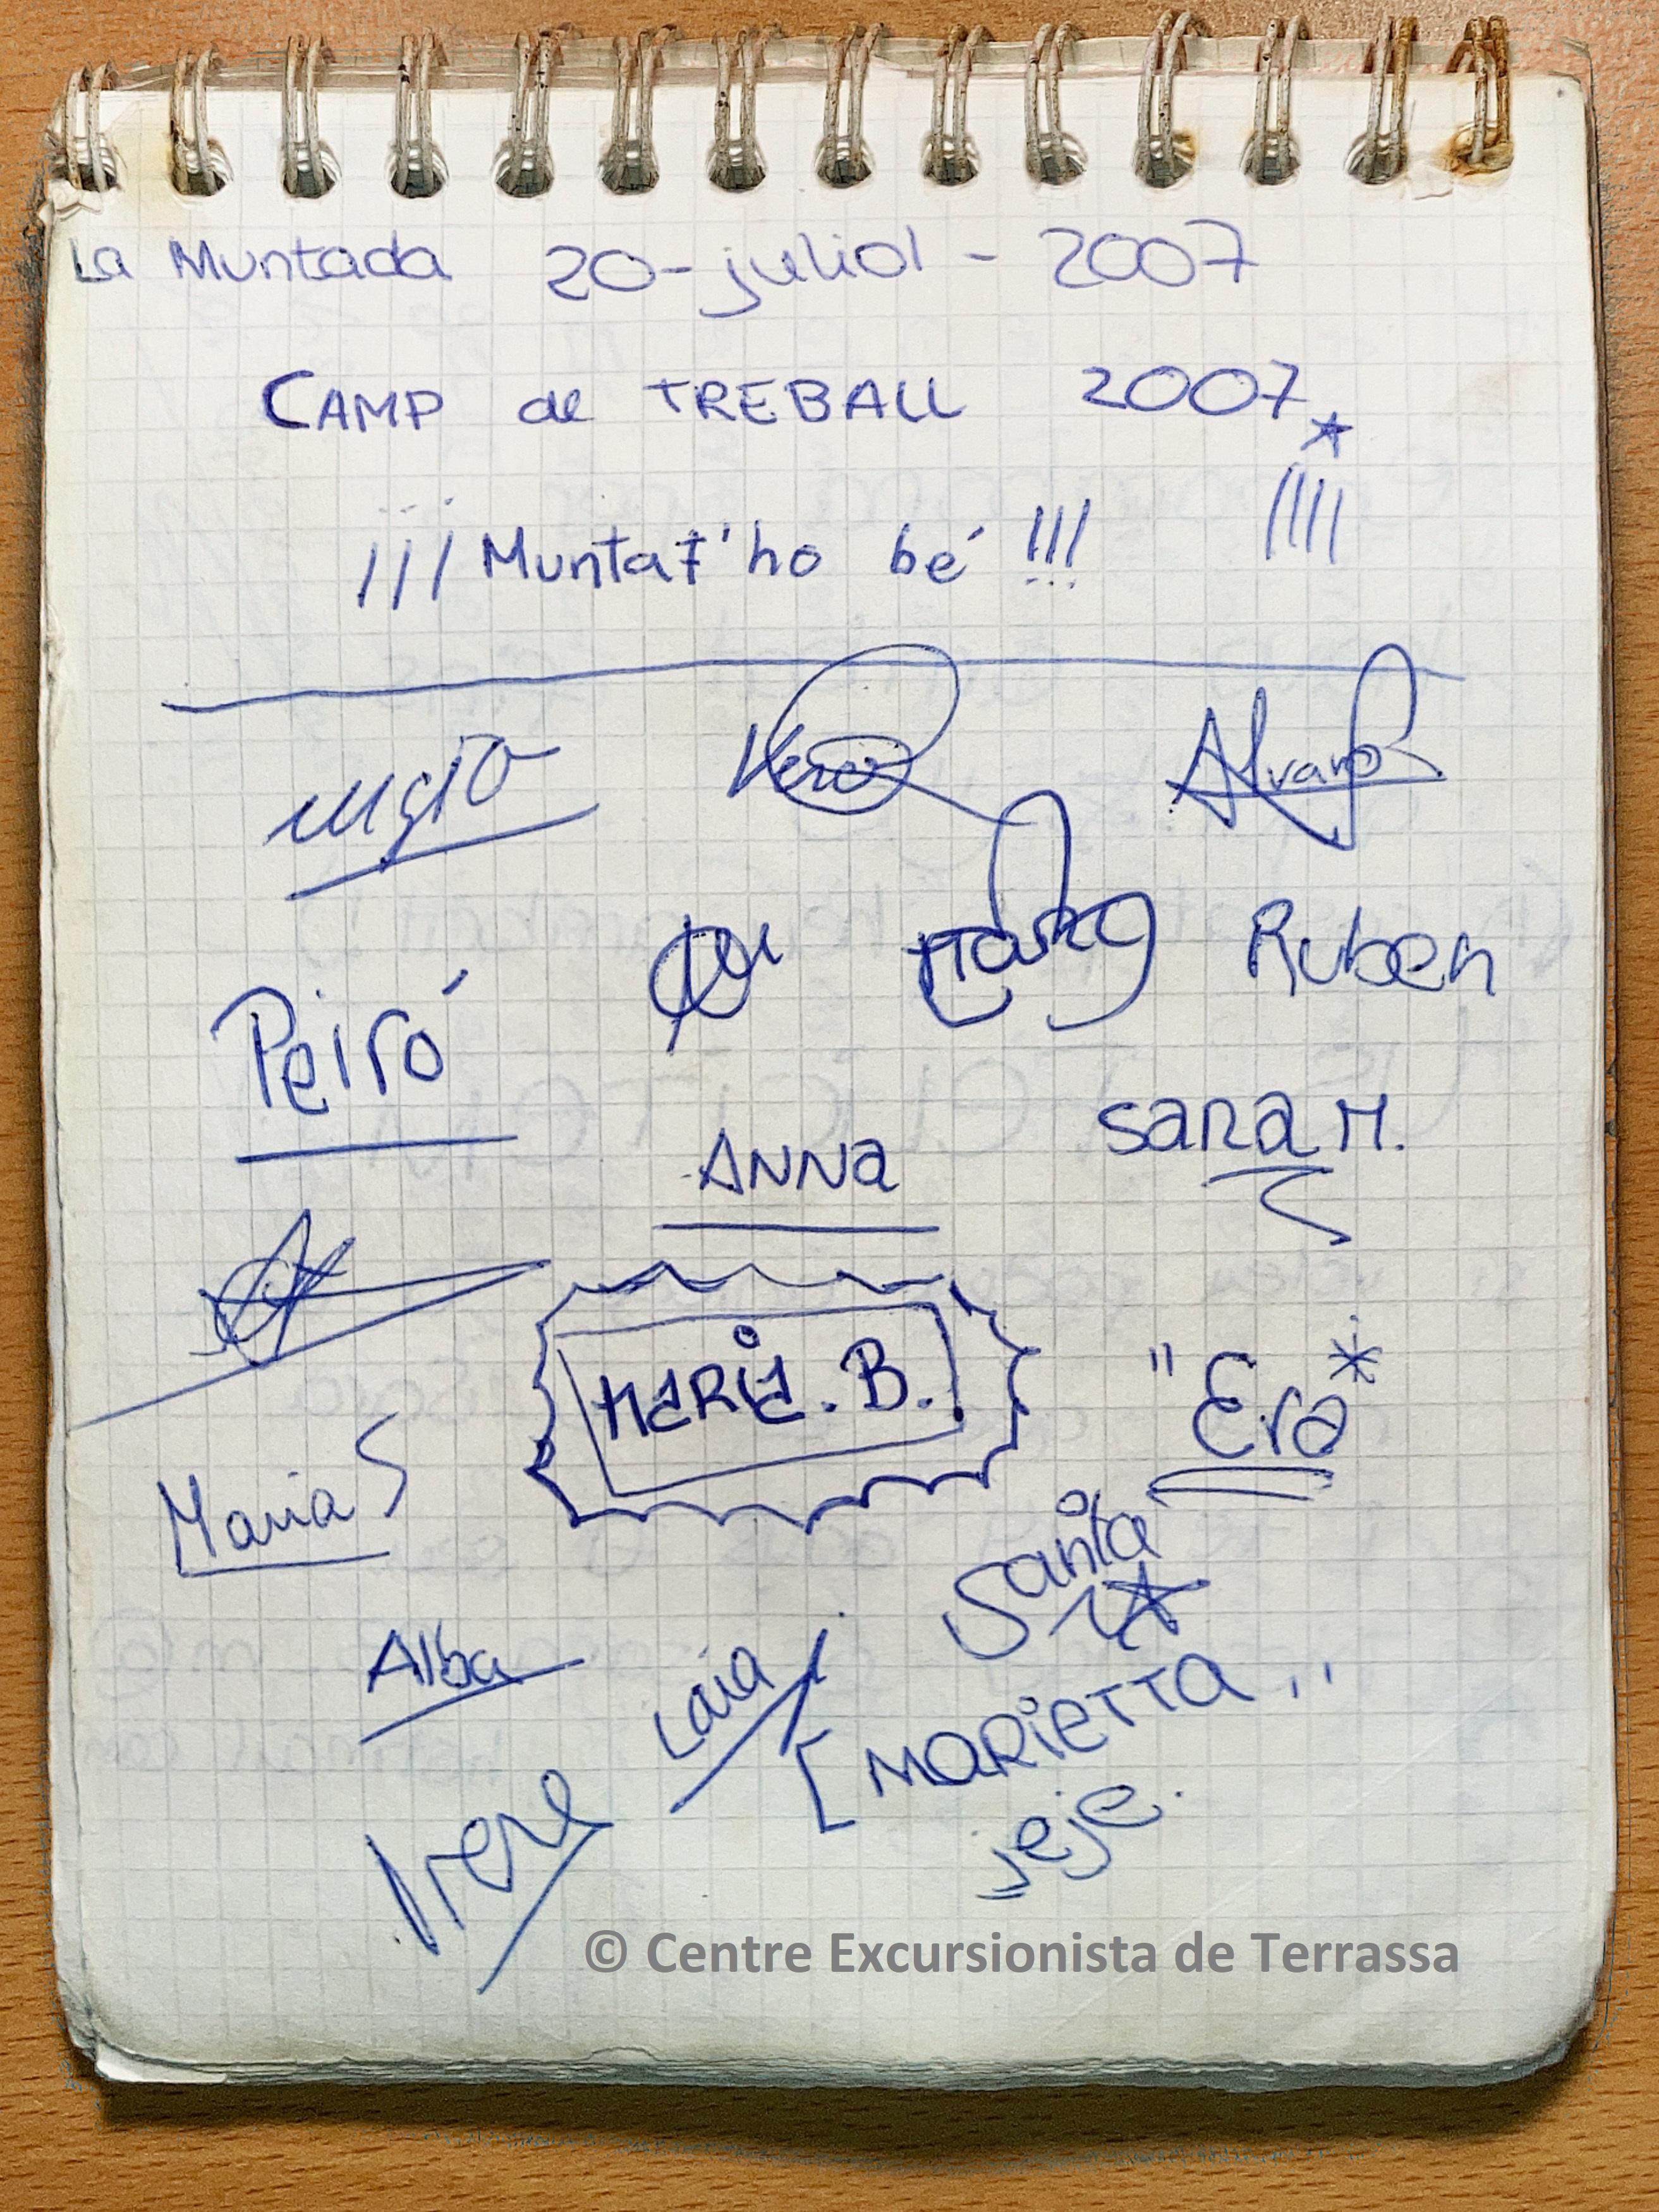 La Muntada 20-juliol-2007
CAMP de TREBALL 2007
¡¡¡Muntat'ho bé!!!
Vero Alvaro
Ruben
Peiró
ANNa SaRa M.
MARIA.B. "Era*
Maria S
Sanita
Alba Laia
[MARIETTA..
Irene jeje.
© Centre Excursionista de Terrassa